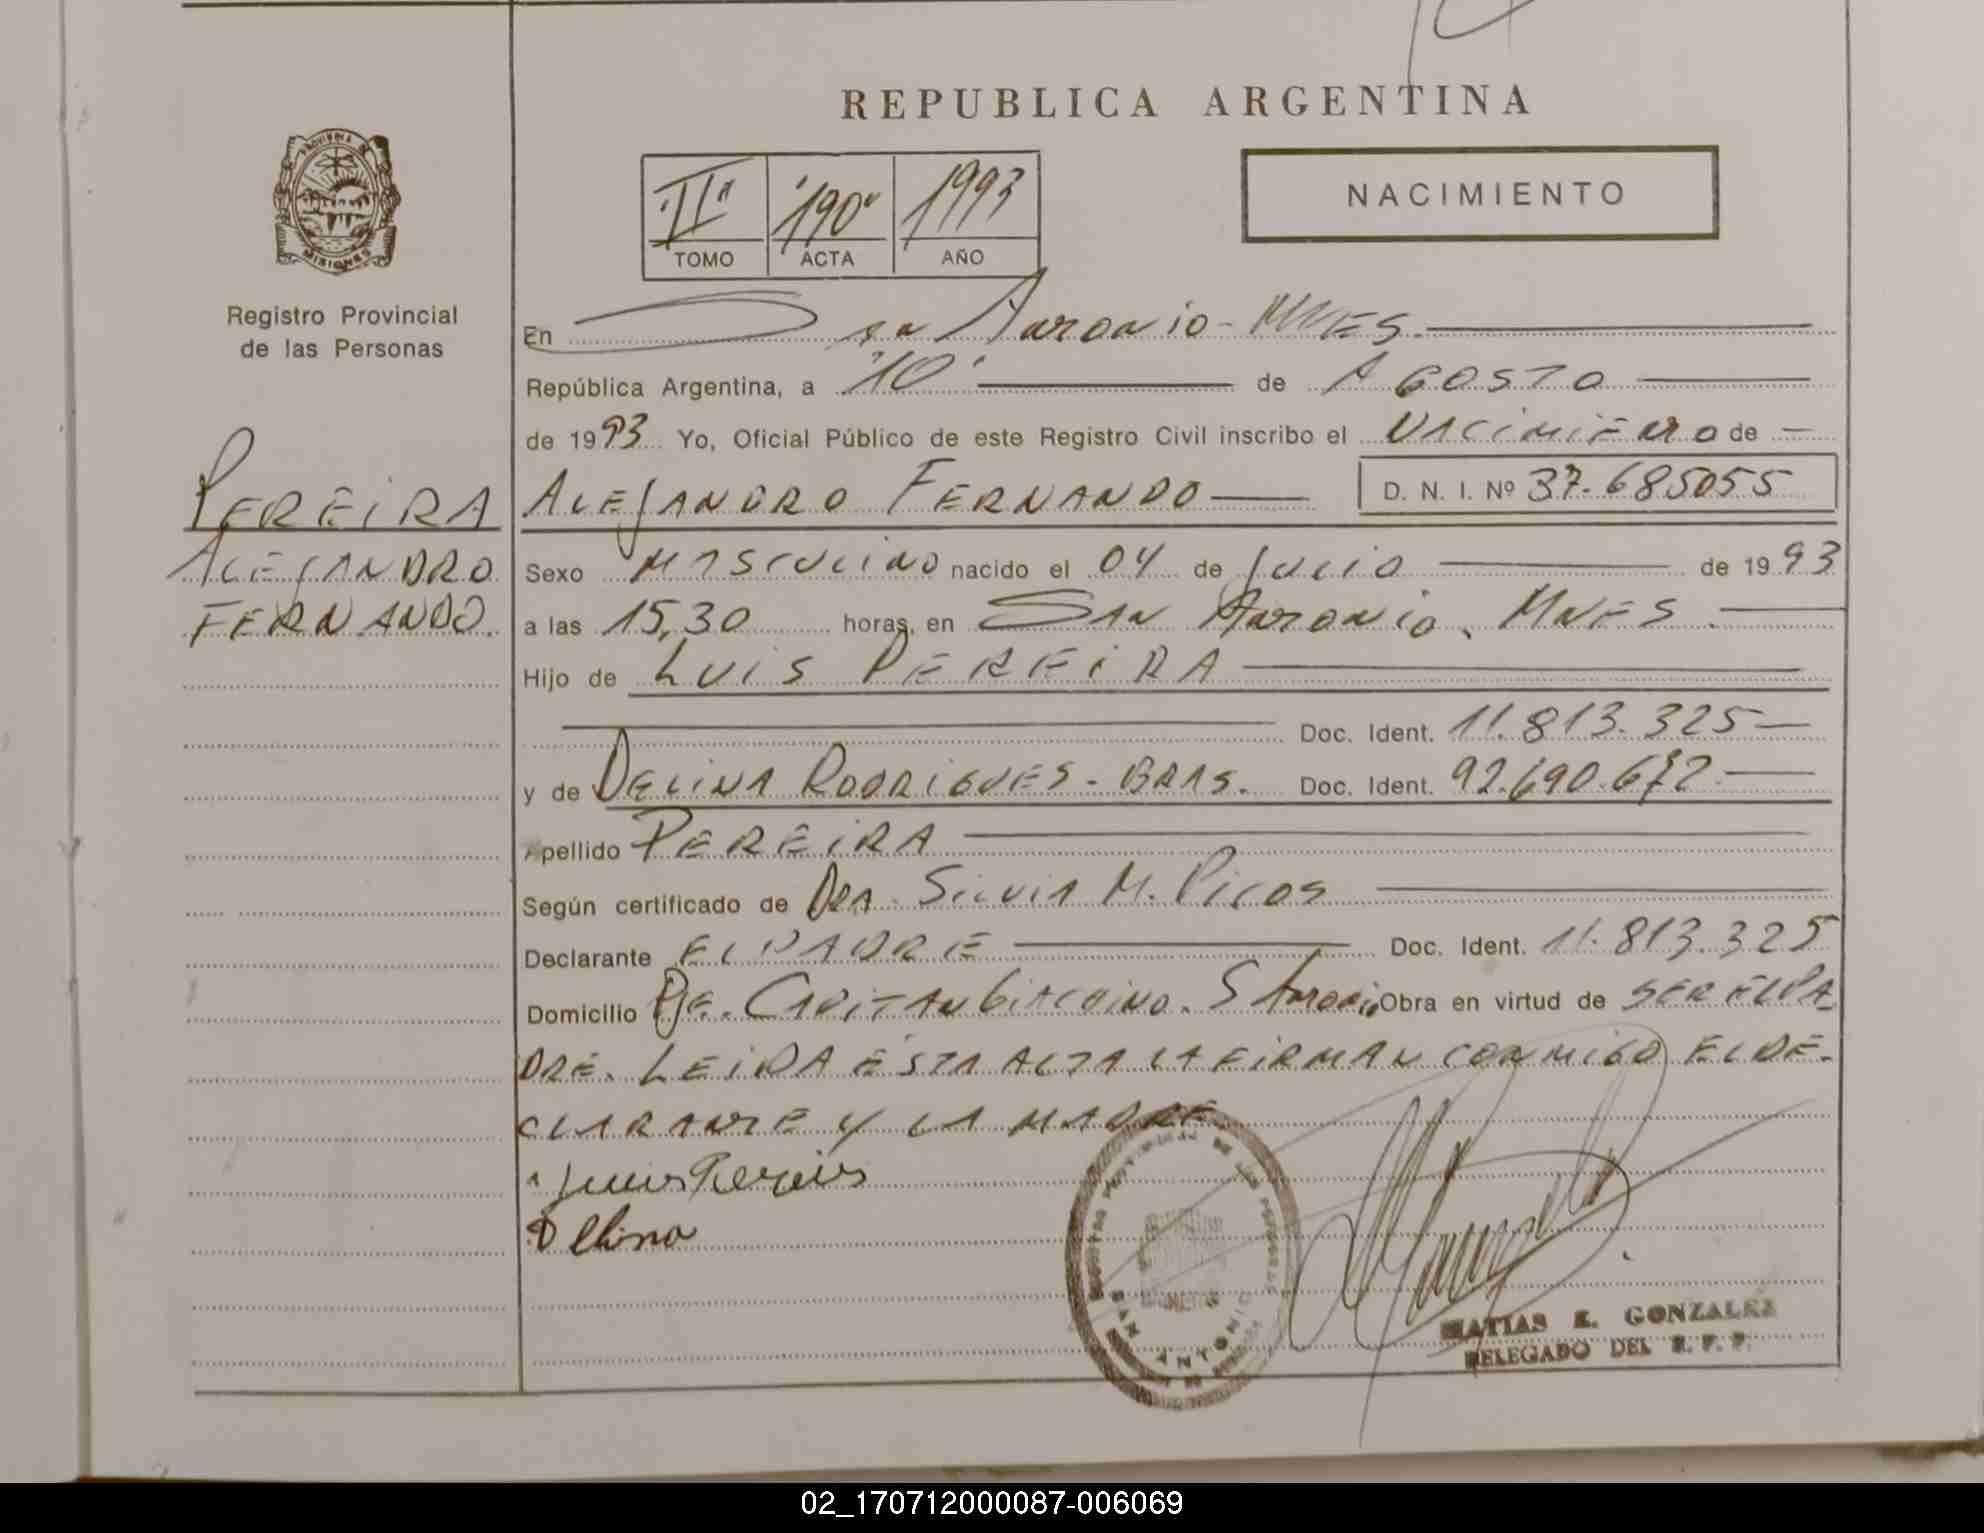 REPUBLICA ARGENTINA
PROVINCIA DE
MISIONES
Registro Provincial
de las Personas
"II" "190" 1993
TOMO ACTA AÑO
NACIMIENTO
En San Antonio - MNES.
República Argentina, a "10" de AGOSTO
de 1993 Yo, Oficial Público de este Registro Civil inscribo el NACIMIENTO de
ALEJANDRO FERNANDO D. N. I. Nº 37.685055
PEREIRA
ALEJANDRO
FERNANDO.
Sexo MASCULINO nacido el 04 de Julio de 1993
a las 15,30 horas, en SAN Antonio. MNES.
Hijo de LUIS PEREIRA
Doc. Ident. 11.813.325
y de DELINA RODRIGUES - BRAS. Doc. Ident. 92.690.672
Apellido PEREIRA
Según certificado de DRA. Silvia M. Picos
Declarante EL PADRE Doc. Ident. 11.813.325
Domicilio Pje. CAPITAN GIACHINO. S Antonio Obra en virtud de SER EL PA
DRE. LEIDA ESTA ACTA LA FIRMAN CONMIGO EL DE-
CLARANTE Y LA MADRE
Delina
SAN ANTONIO
MATIAS E. GONZALEZ
DELEGADO DEL R. P. P.
02_170712000087-006069